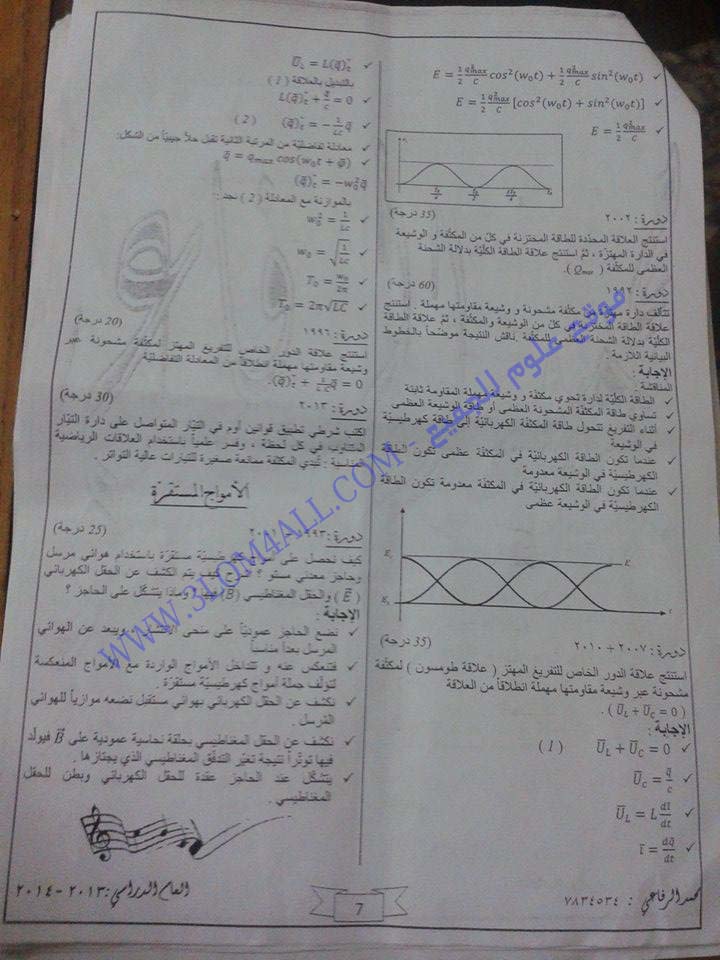 E = 1/2 q²max/C cos²(w₀t) + 1/2 q²max/C sin²(w₀t) ✓
E = 1/2 q²max/C [cos²(w₀t) + sin²(w₀t)] ✓
E = 1/2 q²max/C ✓
(35 درجة)
دورة : ٢٠٠٢
استنتج العلاقة المحدّدة للطاقة المختزنة في كلّ من المكثّفة و الوشيعة
في الدارة المهتزّة ، ثمّ استنتج علاقة الطاقة الكلّيّة بدلالة الشحنة
العظمى للمكثّفة ( Qmax ).
(60 درجة)
دورة : ١٩٩٢
تتألف دارة مهتزة من مكثفة مشحونة و وشيعة مقاومتها مهملة . استنتج
علاقة الطاقة المختزنة في كلّ من الوشيعة والمكثّفة ، ثم علاقة الطاقة
الكلّيّة بدلالة الشحنة العظمى للمكثّفة. ناقش النتيجة موضّحاً بالخطوط
البيانية اللازمة .
الإجابة :
المناقشة :
✓ الطاقة الكليّة لدارة تحوي مكثفة و وشيعة مهملة المقاومة ثابتة
✓ تساوي طاقة المكثّفة المشحونة العظمى أو طاقة الوشيعة العظمى
✓ أثناء التفريغ تتحول طاقة المكثّفة الكهربائيّة إلى طاقة كهرطيسيّة
في الوشيعة
✓ عندما تكون الطاقة الكهربائيّة في المكثفة عظمى تكون الطاقة
الكهرطيسيّة في الوشيعة معدومة
✓ عندما تكون الطاقة الكهربائيّة في المكثّفة معدومة تكون الطاقة
الكهرطيسيّة في الوشيعة عظمى
E
t
(35 درجة)
دورة : ٢٠٠٧ + ٢٠١٠
استنتج علاقة الدور الخاص للتفريغ المهتز ( علاقة طومسون ) لمكثّفة
مشحونة عبر وشيعة مقاومتها مهملة انطلاقاً من العلاقة
( U̅L + U̅C = 0 ) .
الإجابة :
✓ U̅L + U̅C = 0 ( 1 )
✓ U̅c = q̅/c
✓ U̅L = L dı̅/dt
✓ ı̅ = dq̅/dt
✓ U̅L = L(q̅)″t
بالتبديل بالعلاقة ( 1 )
L(q̅)″t + q̅/c = 0 ✓
(q̅)″t = − 1/Lc q̅ ( 2 ) ✓
✓ معادلة تفاضليّة من المرتبة الثانية تقبل حلاً جيبيّاً من الشكل:
q̅ = qmax cos(w₀t + φ̅) ✓
(q̅)″t = −w₀² q̅
بالموازنة مع المعادلة ( 2 ) نجد :
w₀² = 1/Lc ✓
w₀ = √(1/Lc) ✓
T₀ = w₀/2π ✓
T₀ = 2π√LC ✓
(20 درجة)
دورة : ١٩٩٦
استنتج علاقة الدور الخاص للتفريغ المهتز لمكثفة مشحونة عبر
وشيعة مقاومتها مهملة انطلاقاً من المعادلة التفاضليّة
(q̅)″t + 1/L.C q̅ = 0
(30 درجة)
دورة : ٢٠١٣
اكتب شرطي تطبيق قوانين أوم في التيّار المتواصل على دارة التيّار
المتناوب في كلّ لحظة ، وفسر علمياً باستخدام العلاقات الرياضية
المناسبة : تُبدي المكثفة ممانعة صغيرة للتيارات عالية التواتر .
الأمواج المستقرّة
(25 درجة)
دورة : ١٩٩٣
كيف نحصل على أمواج كهرطيسيّة مستقرّة باستخدام هوائي مرسل
وحاجز معدني مستو ؟ اشرح كيف يتم الكشف عن الحقل الكهربائي
( E ) والحقل المغناطيسي ( B ) فيها ؟ وماذا يتشكّل على الحاجز ؟
الإجابة :
✓ نضع الحاجز عموديّاً على منحى الانتشار ويبعد عن الهوائي
المرسل بعداً مناسباً
✓ فتنعكس عنه و تتداخل الأمواج الواردة مع الأمواج المنعكسة
لتؤلف جملة أمواج كهرطيسيّة مستقرّة .
✓ نكشف عن الحقل الكهربائي بهوائي مستقبل نضعه موازياً للهوائي
المُرسل .
✓ نكشف عن الحقل المغناطيسي بحلقة نحاسية عمودية على B فيولّد
فيها توتّراً نتيجة تغيّر التدفّق المغناطيسي الذي يجتازها .
✓ يتشكّل عند الحاجز عقدة للحقل الكهربائي وبطن للحقل
المغناطيسي .
الرفاعي : ٧٨٣٤٥٣٤
7
العام الدراسي : ٢٠١٣ - ٢٠١٤
WWW.3LOM4ALL.COM - موقع علوم للجميع